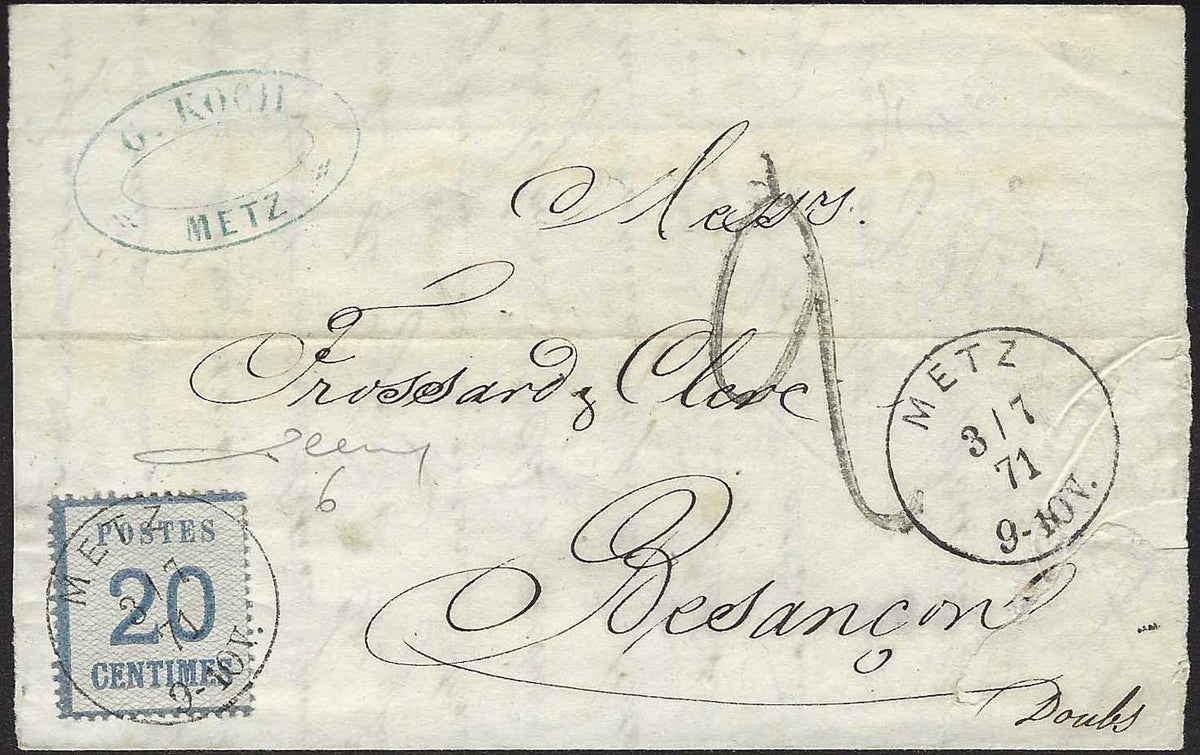 G. KOCH
METZ
Messrs.
Frossard & Clerc
Besançon
Doubs
2
6
METZ
3/7
71
9-10V.
POSTES
20
CENTIMES
METZ
3/7
71
9-10V.